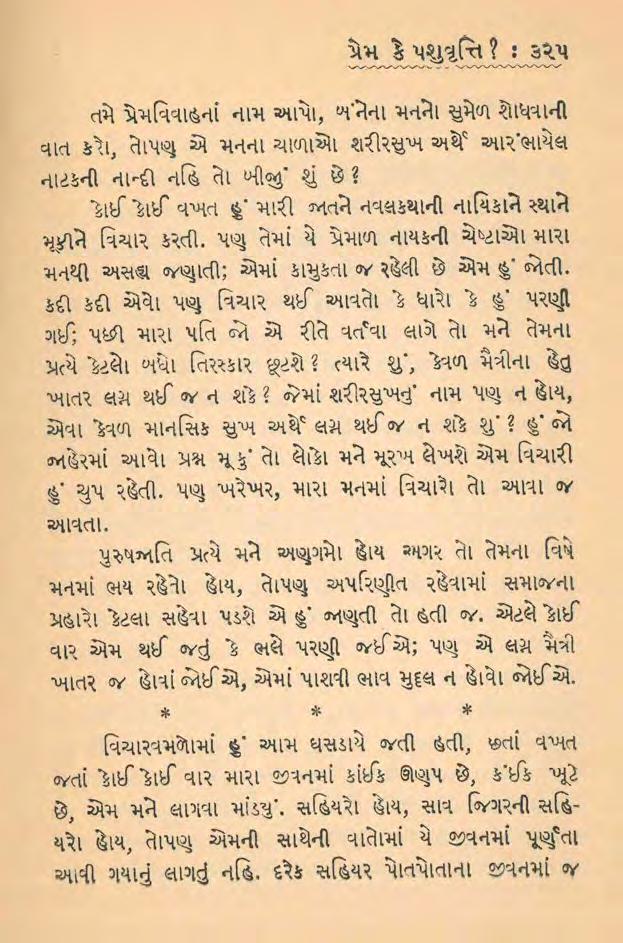 પ્રેમ કે પશુવૃત્તિ? : ૩૨૫
તમે પ્રેમવિવાહનાં નામ આપો, બંનેના મનનો સુમેળ શોધવાની
વાત કરો, તોપણ એ મનના ચાળાઓ શરીરસુખ અર્થે આરંભાયેલ
નાટકની નાન્દી નહિ તો બીજું શું છે?
કોઈ કોઈ વખત હું મારી જાતને નવલકથાની નાયિકાને સ્થાને
મૂકીને વિચાર કરતી. પણ તેમાં યે પ્રેમાળ નાયકની ચેષ્ટાઓ મારા
મનથી અસહ્ય જણાતી; એમાં કામુકતા જ રહેલી છે એમ હું જોતી.
કદી કદી એવો પણ વિચાર થઈ આવતો કે ધારો કે હું પરણી
ગઈ; પછી મારા પતિ જો એ રીતે વર્તવા લાગે તો મને તેમના
પ્રત્યે કેટલો બધો તિરસ્કાર છૂટશે? ત્યારે શું, કેવળ મૈત્રીના હેતુ
ખાતર લગ્ન થઈ જ ન શકે? જેમાં શરીરસુખનું નામ પણ ન હોય,
એવા કેવળ માનસિક સુખ અર્થે લગ્ન થઈ જ ન શકે શું? હું જો
જાહેરમાં આવો પ્રશ્ન મૂકું તો લોકો મને મૂરખ લેખશે એમ વિચારી
હું ચુપ રહેતી. પણ ખરેખર, મારા મનમાં વિચારો તો આવા જ
આવતા.
પુરુષજાતિ પ્રત્યે મને અણગમો હોય અગર તો તેમના વિષે
મનમાં ભય રહેતો હોય, તોપણ અપરિણીત રહેવામાં સમાજના
પ્રહારો કેટલા સહેવા પડશે એ હું જાણતી તો હતી જ. એટલે કોઈ
વાર એમ થઈ જતું કે ભલે પરણી જઈએ; પણ એ લગ્ન મૈત્રી
ખાતર જ હોવાં જોઈએ, એમાં પાશવી ભાવ મુદ્દલ ન હોવો જોઈએ.
* * *
વિચારવમળોમાં હું આમ ઘસડાયે જતી હતી, છતાં વખત
જતાં કોઈ કોઈ વાર મારા જીવનમાં કાંઈક ઊણપ છે, કંઈક ખૂટે
છે, એમ મને લાગવા માંડ્યું. સહિયરો હોય, સાવ જિગરની સહિ-
યરો હોય, તોપણ એમની સાથેની વાતોમાં યે જીવનમાં પૂર્ણતા
આવી ગયાનું લાગતું નહિ. દરેક સહિયર પોતપોતાના જીવનમાં જ